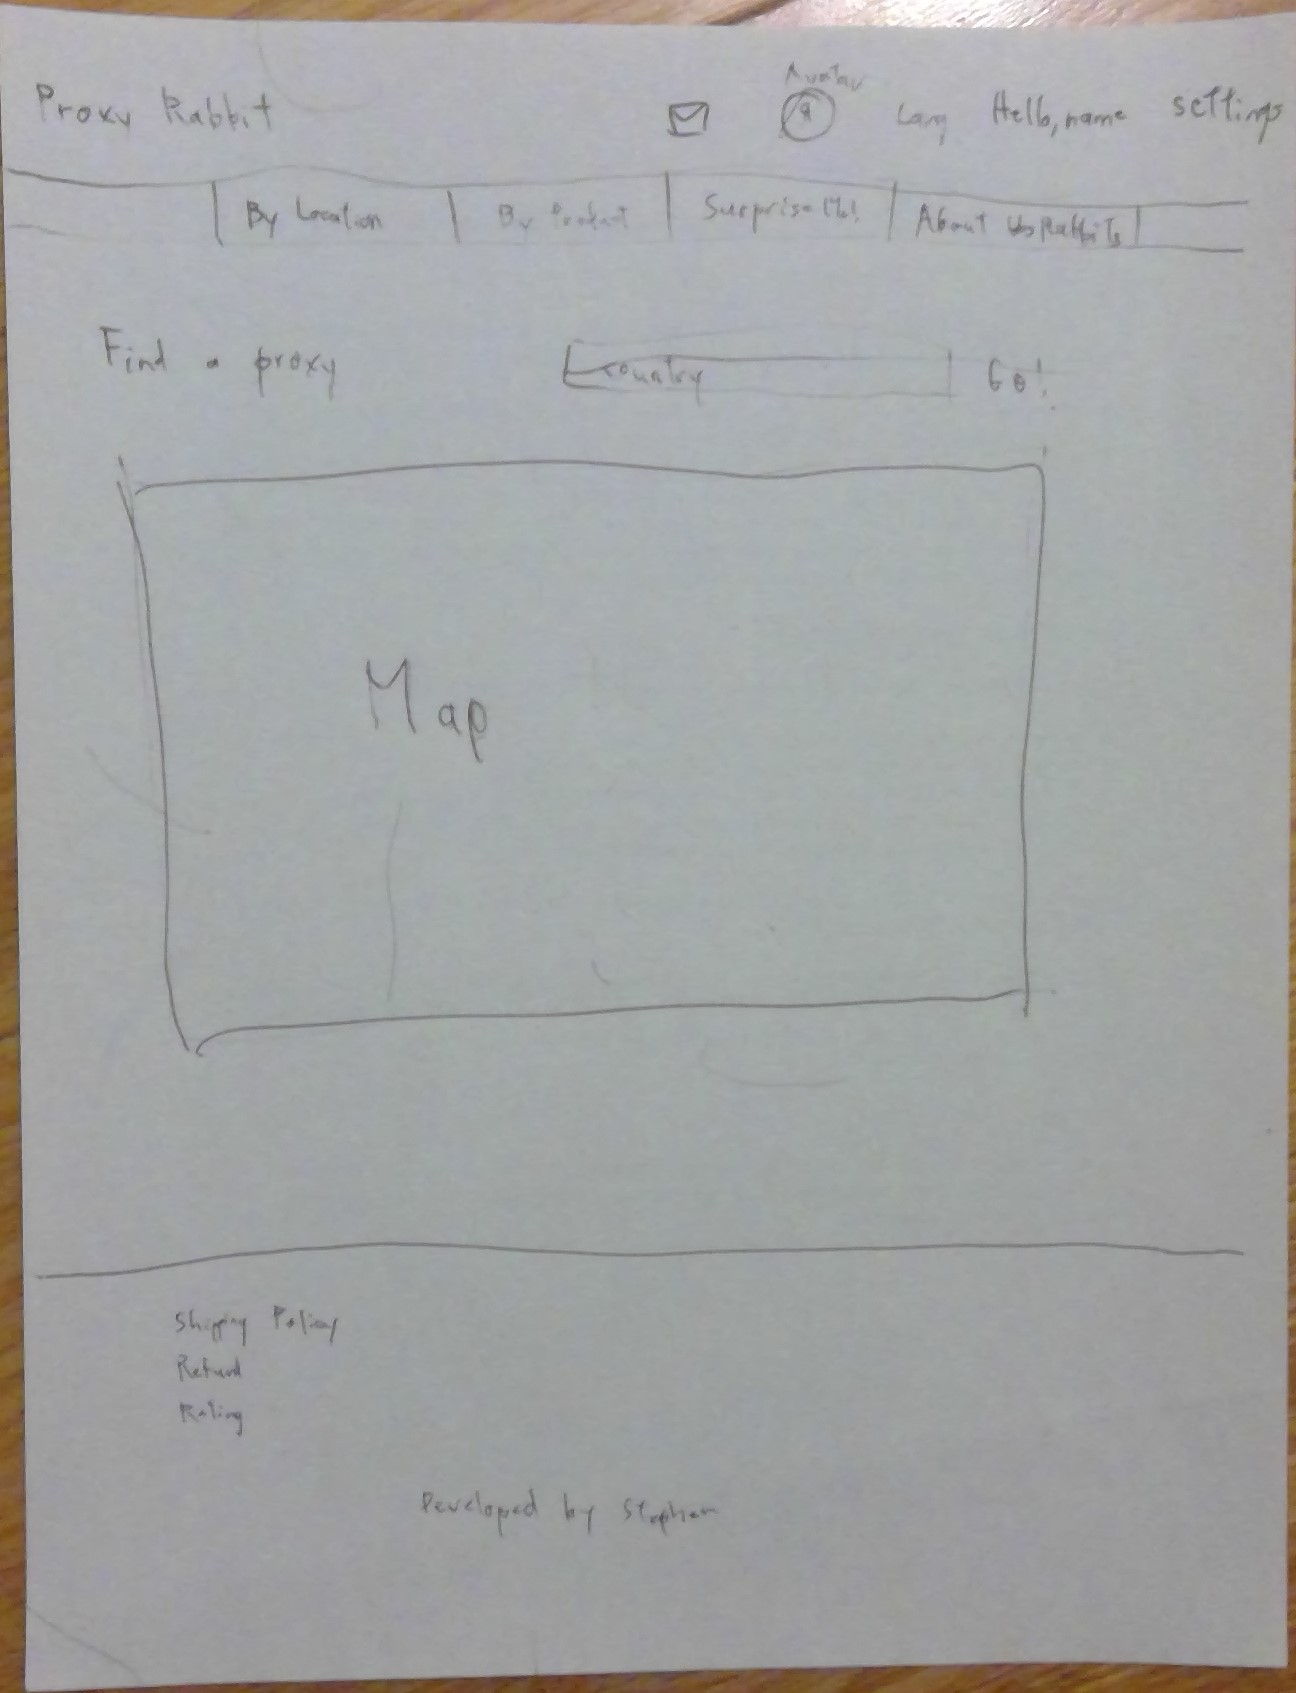 Proxy Rabbit
Avatar
Lang Hello, name settings
By Location By Product Surprise Me! About Us Rabbits
Find a proxy country Go!
Map
Shipping Policy
Refund
Rating
Developed by Stephen